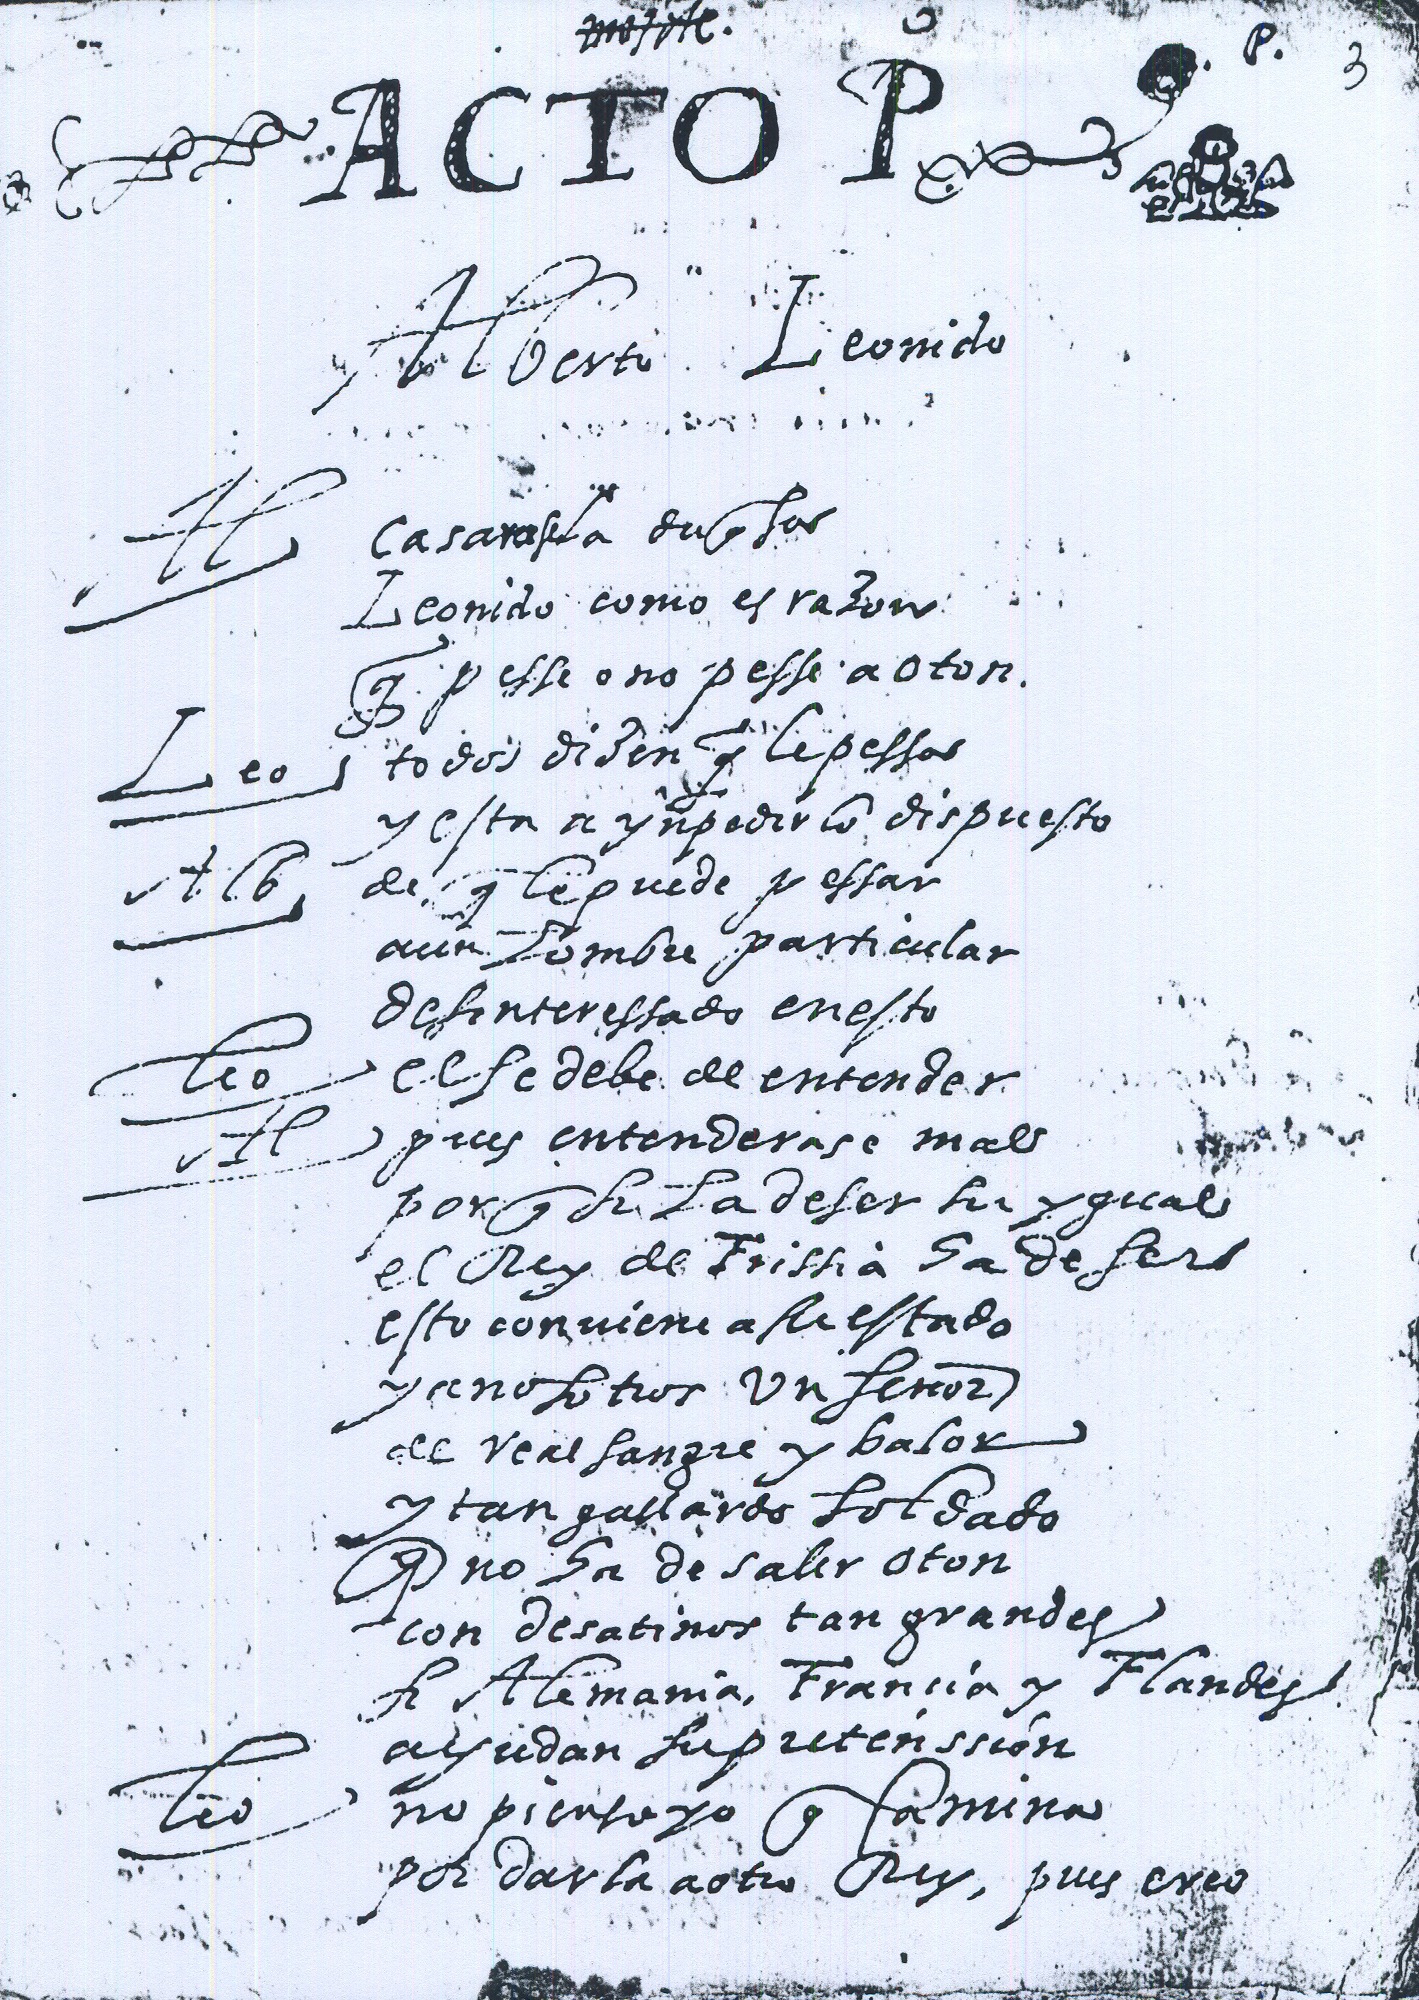 P. 3
ACTO P
Alberto Leonido
Al casarasela
Leonido como es razon
q pesse o no pesse a oton.
Leo todos dizen q le pessa
y esta a ynpedirlo dispuesto
Alb de q le puede pessar
a un hombre particular
desinteressado en esto
Leo el se debe de entender
Al pues entenderase mal
porq si ha de ser su ygual
el Rey de Frissia ha de ser
esto conviene a su estado
y a nosotros un señor
de real sangre y balor
y tan gallardo soldado
q no ha de saler oton
con desatinos tan grandes
si Alemania, Francia y Flandes
ayudan su pretenssion
Leo no pienso yo q camina
por darla a otro Rey, pues creo